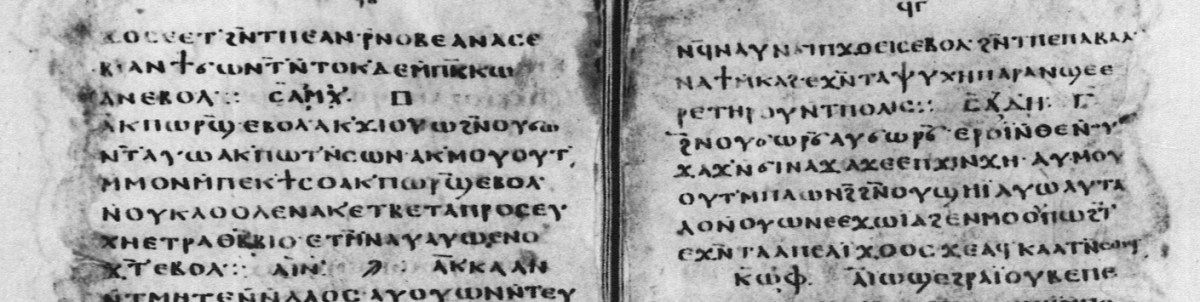 ϫⲟⲥⲉⲉⲧϩⲛ̄ⲧⲡⲉⲁⲛⲣ̄ⲛⲟⲃⲉⲁⲛⲁⲥⲉ
ⲃⲓⲁⲛϯϭⲱⲛⲧ̄ⲛ̄ⲧⲟⲕⲇⲉⲙ̄ⲡⲕ̄ⲕⲱ
ⲁⲛⲉⲃⲟⲗ : ⲥⲁⲙⲭ
ⲁⲕⲡⲱⲣϣ̄ⲉⲃⲟⲗ·ⲁⲕϫⲓⲟⲩⲱϩⲛ̄ⲟⲩϭⲱ
ⲛⲧ̄ⲁⲩⲱⲁⲕⲡⲱⲧⲛ̄ⲥⲱⲛ·ⲁⲕⲙⲟⲩⲟⲩⲧ
ⲙ̄ⲙⲟⲛⲙ̄ⲡⲉⲕϯⲥⲟⲁⲕⲡⲱⲣϣ̄ⲉⲃⲟⲗ
ⲛ̄ⲟⲩⲕⲗⲟⲟⲗⲉⲛⲁⲕⲉⲧⲃⲉⲧⲁⲡⲣⲟⲥⲉⲩ
ⲭⲏⲉⲧⲣⲁⲑⲃ̄ⲃⲓⲟ·ⲉⲧⲙ̄ⲛⲁⲩⲁⲩⲱⲉⲛⲟ
ϫⲧ̄ⲉⲃⲟⲗ : ⲁⲓⲛ ⲁⲕⲕⲁⲁⲛ
ⲛ̄ⲧⲙⲏⲧⲉⲛ̄ⲛ̄ⲗⲁⲟⲥ·ⲁⲩⲟⲩⲱⲛⲛ̄ⲧⲉⲩ
ϥⲅ
ⲛϥ̄ⲛⲁⲩⲛ̄ϭⲓⲡϫⲟⲉⲓⲥⲉⲃⲟⲗϩⲛ̄ⲧⲡⲉⲡⲁⲃⲁⲗ
ⲛⲁϯⲙ̄ⲕⲁϩⲉϫⲛ̄ⲧⲁⲯⲩⲭⲏⲡⲁⲣⲁⲛ̄ϣⲉⲉ
ⲣⲉⲧⲏⲣⲟⲩⲛ̄ⲧⲡⲟⲗⲓⲥ :
ϩⲛ̄ⲟⲩϭⲱⲣϭ̄ⲁⲩϭⲱⲣϭ̄ⲉⲣⲟⲓ̈ⲛ̄ⲑⲉⲛ̄ⲟⲩ
ϫⲁϫⲛ̄ϭⲓⲛⲁϫⲁϫⲉⲉⲡϫⲓⲛϫⲏ·ⲁⲩⲙⲟⲩ
ⲟⲩⲧⲙ̄ⲡⲁⲱⲛϩ̄ϩⲛ̄ⲟⲩϣⲏⲓ̈ⲁⲩⲱⲁⲩⲧⲁ
ⲗⲟⲛ̄ⲟⲩⲱⲛⲉⲉϫⲱⲓ̈ⲁϩⲉⲛⲙⲟⲟⲩⲡⲱϩⲧ̄
ⲉϫⲛ̄ⲧⲁⲁⲡⲉⲁⲓ̈ϫⲟⲟⲥϫⲉⲁϥⲕⲁⲁⲧⲛ̄ⲥⲱϥ
ⲕⲱⲫ ⲁⲓ̈ⲱϣⲉϩⲣⲁⲓ̈ⲟⲩⲃⲉⲡⲉ